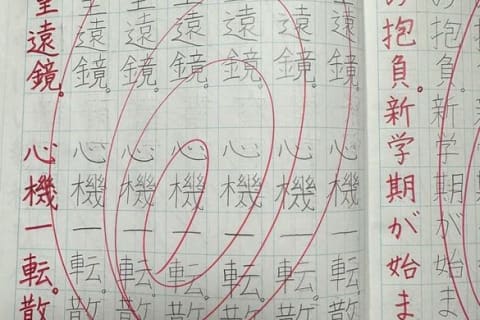 の抱負。新学期が始ま
の抱負。新学期が始ま
望遠鏡。心機一転。散
望遠鏡。心機一転。散
望遠鏡。心機一転。散
望遠鏡。心機一転。散
望遠鏡。心機一転。散
望遠鏡。心機一転。散
望遠鏡。心機一転。散